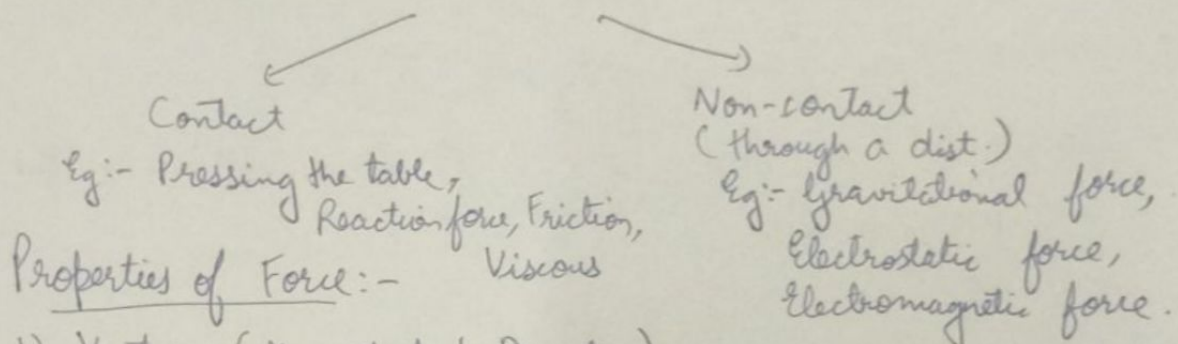 Contact
Eg:- Pressing the table,
Reaction force, Friction,
Viscous
Non-contact
(through a dist.)
Eg:- Gravitational force,
Electrostatic force,
Electromagnetic force.
Properties of Force:-